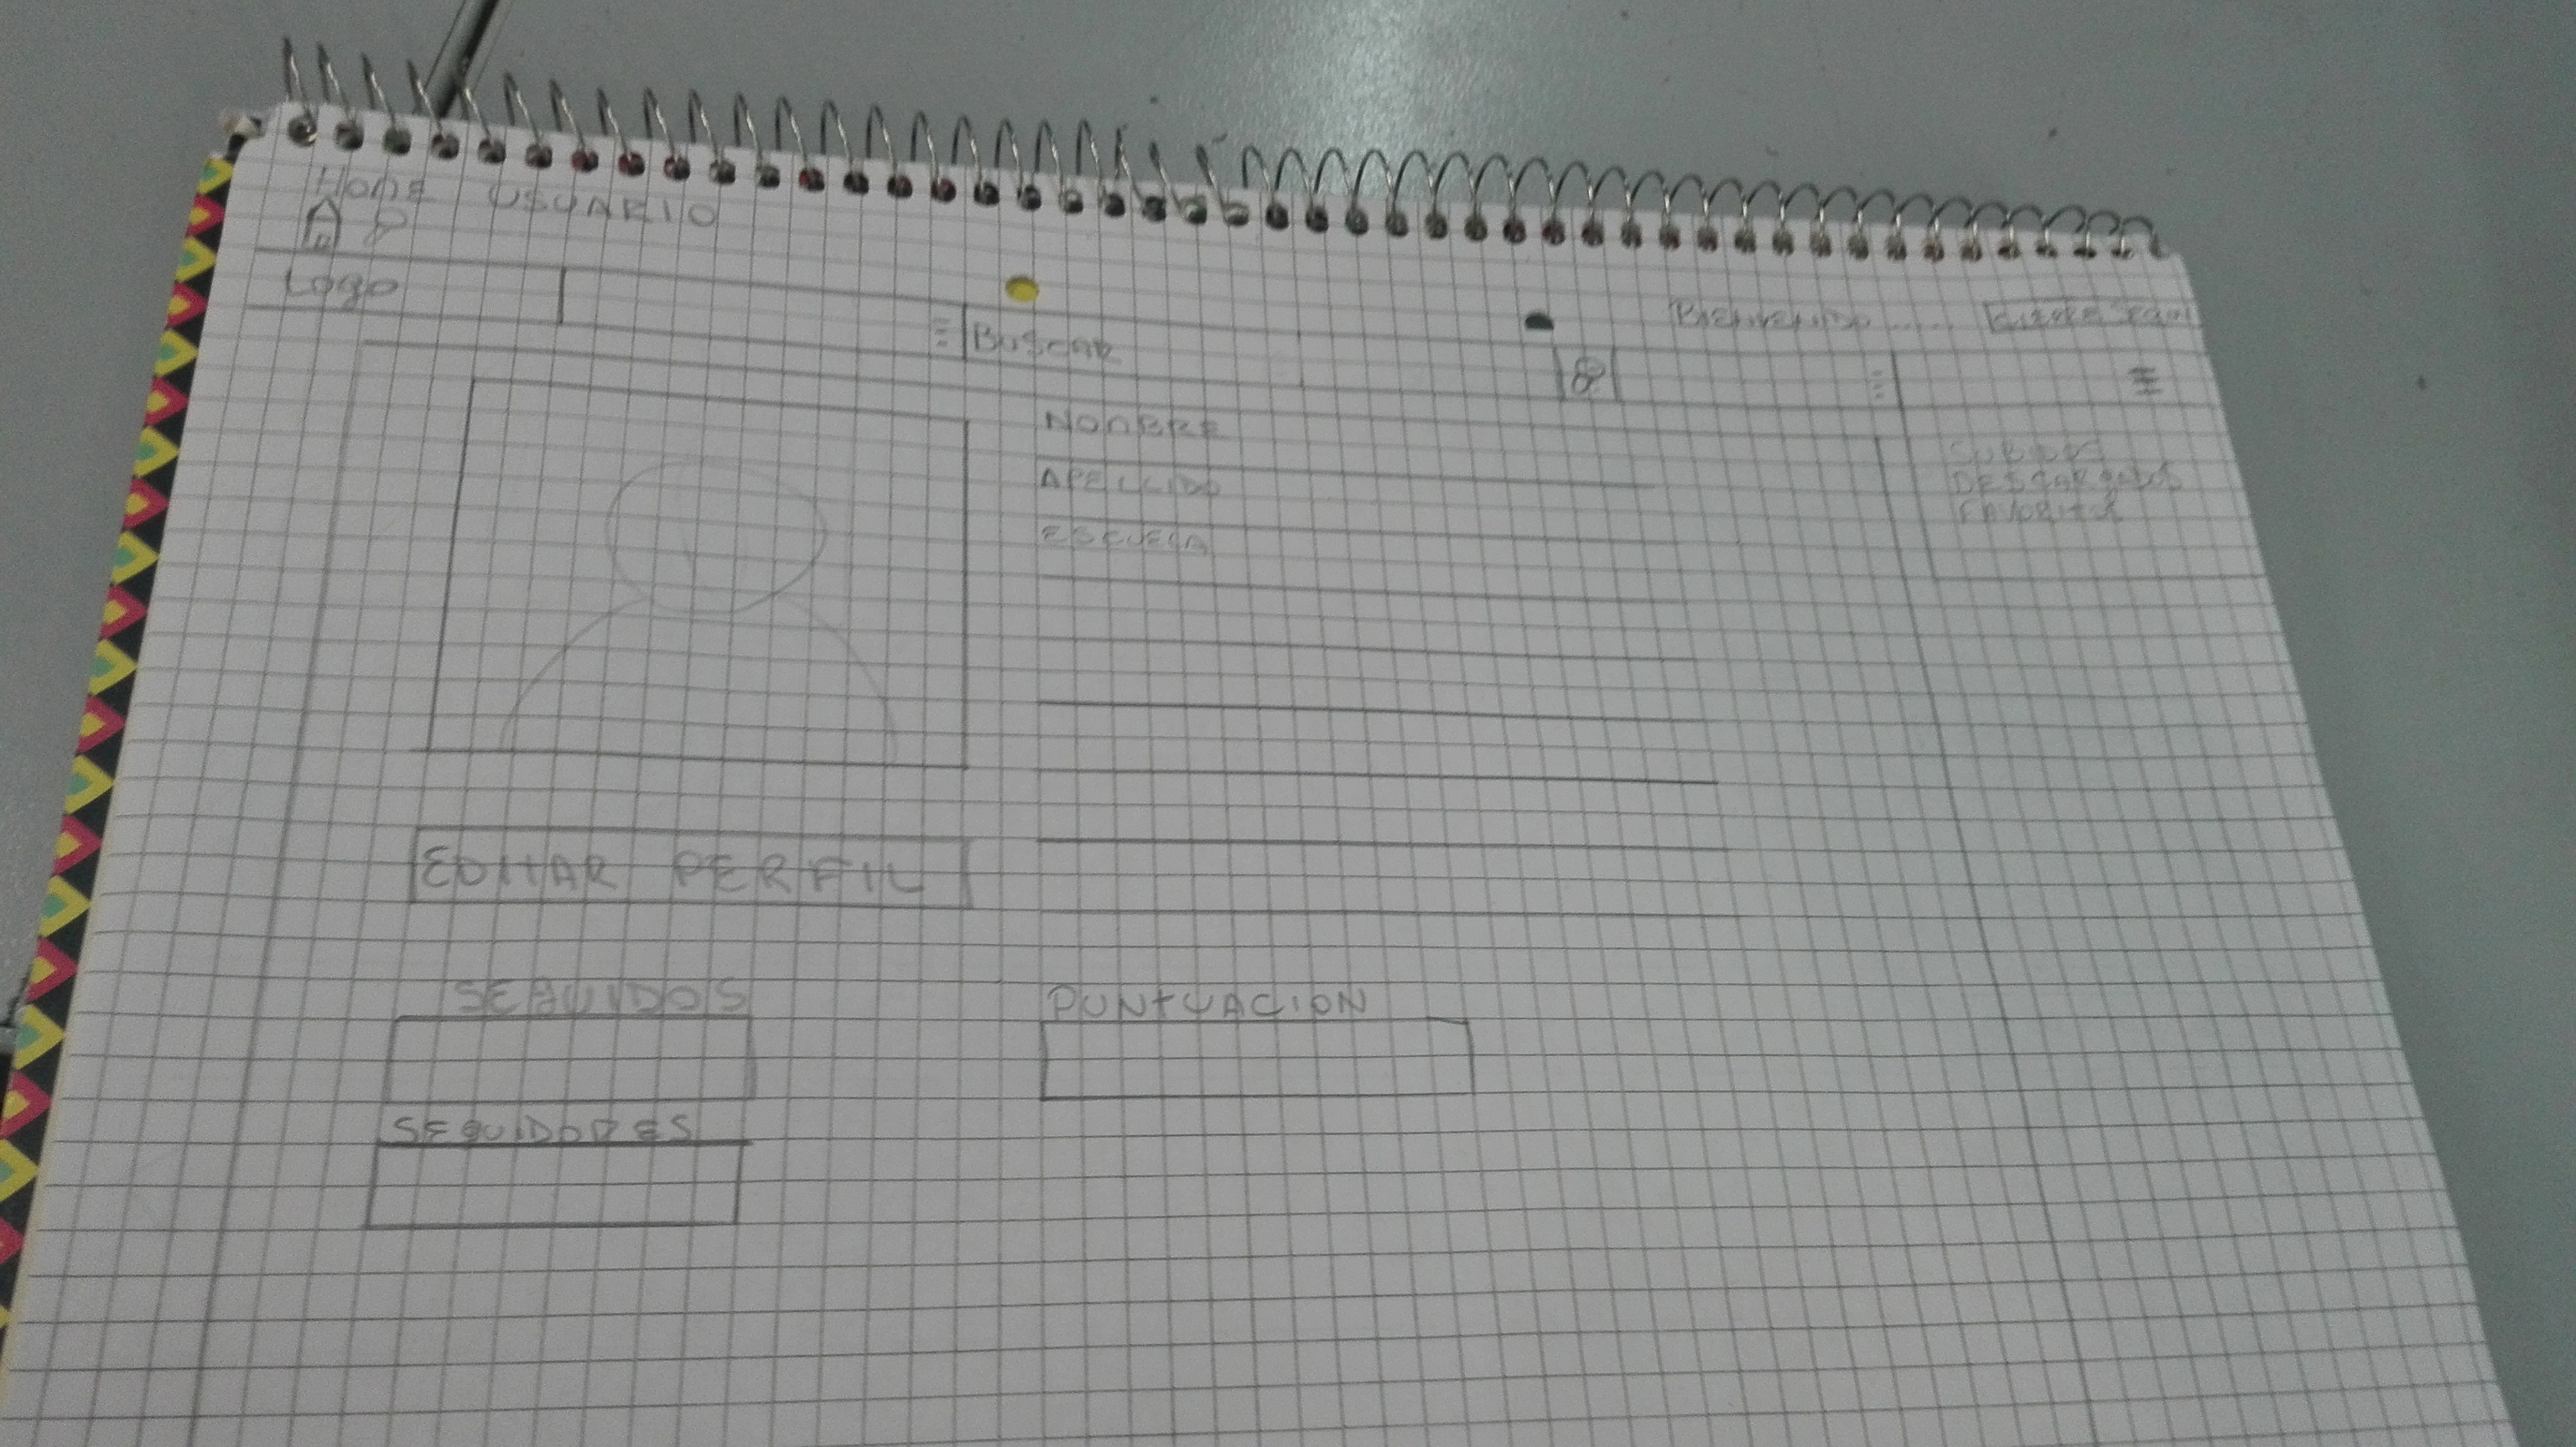 Home USUARIO
Logo
Buscar
Bienvenido ......
NOMBRE
APELLIDO
ESCUELA
SUBIDOS
DESCARGADOS
FAVORITOS
EDITAR PERFIL
SEGUIDOS
PUNTUACION
SEGUIDORES